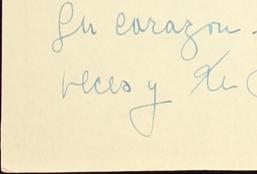 Su corazon.
veces y su